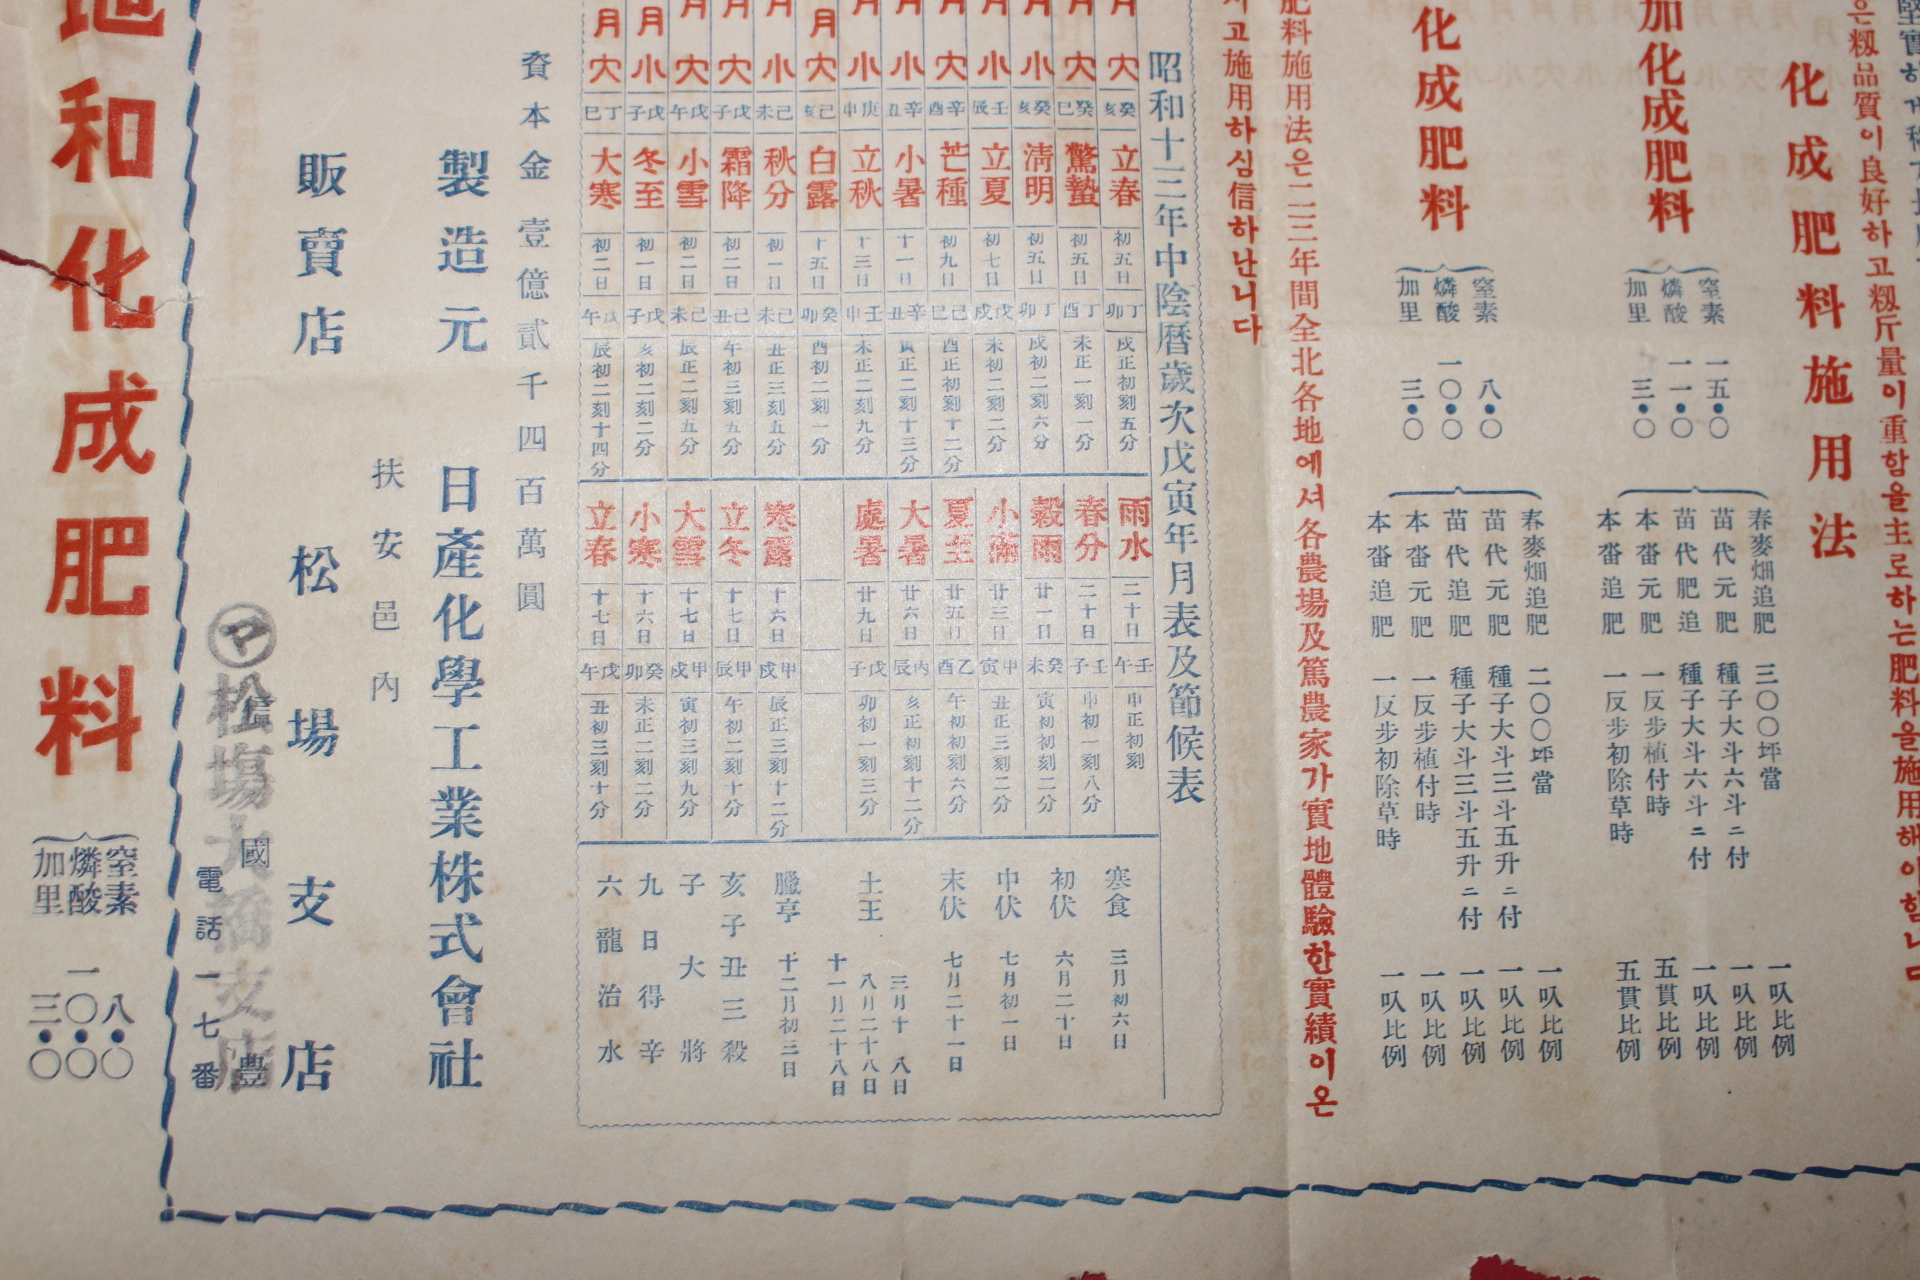 堅實하게
은籾品質이良好하고籾斤量이重함을主로하는肥料을施用해야함니다
化成肥料施用法
加化成肥料
窒素 一五●〇
燐酸 一一●〇
加里 三●〇
春麥畑追肥 三〇〇坪當 一叺比例
苗代元肥 種子大斗六斗ニ付 一叺比例
苗代肥追 種子大斗六斗ニ付 一叺比例
本畓元肥 一反步植付時 五貫比例
本畓追肥 一反步初除草時 五貫比例
化成肥料
窒素 八●〇
燐酸 一〇●〇
加里 三●〇
春麥畑追肥 二〇〇坪當 一叺比例
苗代元肥 種子大斗三斗五升ニ付 一叺比例
苗代追肥 種子大斗三斗五升ニ付 一叺比例
本畓元肥 一反步植付時 一叺比例
本畓追肥 一反步初除草時 一叺比例
肥料施用法은二三年間全北各地에셔各農場及篤農家가實地體驗한實績이온
고施用하심信하난니다
昭和十三年中陰曆歲次戊寅年月表及節候表
月大 癸亥 立春 初五日 丁卯 戌正初刻五分 雨水 二十日 壬午 申正初刻
月大 癸巳 驚蟄 初五日 丁酉 未正一刻一分 春分 二十日 壬子 申初一刻八分
月小 癸亥 淸明 初五日 丁卯 戌初二刻六分 穀雨 廿一日 癸未 寅初初刻二分
月小 壬辰 立夏 初七日 戊戌 未初二刻二分 小滿 廿三日 甲寅 丑正三刻二分
月大 辛酉 芒種 初九日 己巳 酉正初刻十二分 夏至 廿五日 乙酉 午初初刻六分
月小 辛丑 小暑 十一日 辛丑 寅正二刻十三分 大暑 廿六日 丙辰 亥正初刻十二分
月小 庚申 立秋 十三日 壬申 未正二刻九分 處暑 廿九日 戊子 卯初一刻三分
月大 己亥 白露 十五日 癸卯 酉初二刻一分
月小 己未 秋分 初一日 己未 丑正三刻五分 寒露 十六日 甲戌 辰正三刻十二分
月大 戊子 霜降 初二日 己丑 午初三刻五分 立冬 十七日 甲辰 午初二刻十分
月大 戊午 小雪 初二日 己未 辰正二刻五分 大雪 十七日 甲戌 寅初三刻九分
月小 戊子 冬至 初一日 戊子 亥初二刻二分 小寒 十六日 癸卯 未正二刻二分
月大 丁巳 大寒 初二日 戊午 辰初二刻十四分 立春 十七日 戊午 丑初三刻十分
寒食 三月初六日
初伏 六月二十日
中伏 七月初一日
末伏 七月二十一日
土王 三月十八日
八月二十八日
十一月二十八日
臘亨 十二月初三日
亥子丑三殺
子大將
九日得辛
六龍治水
資本金壹億貳千四百萬圓
製造元 日產化學工業株式會社
扶安邑內
販賣店 松場支店
國豊
電話一七番
マ松場大
支店
和化成肥料
窒素 八●〇
燐酸 一〇●〇
加里 三●〇